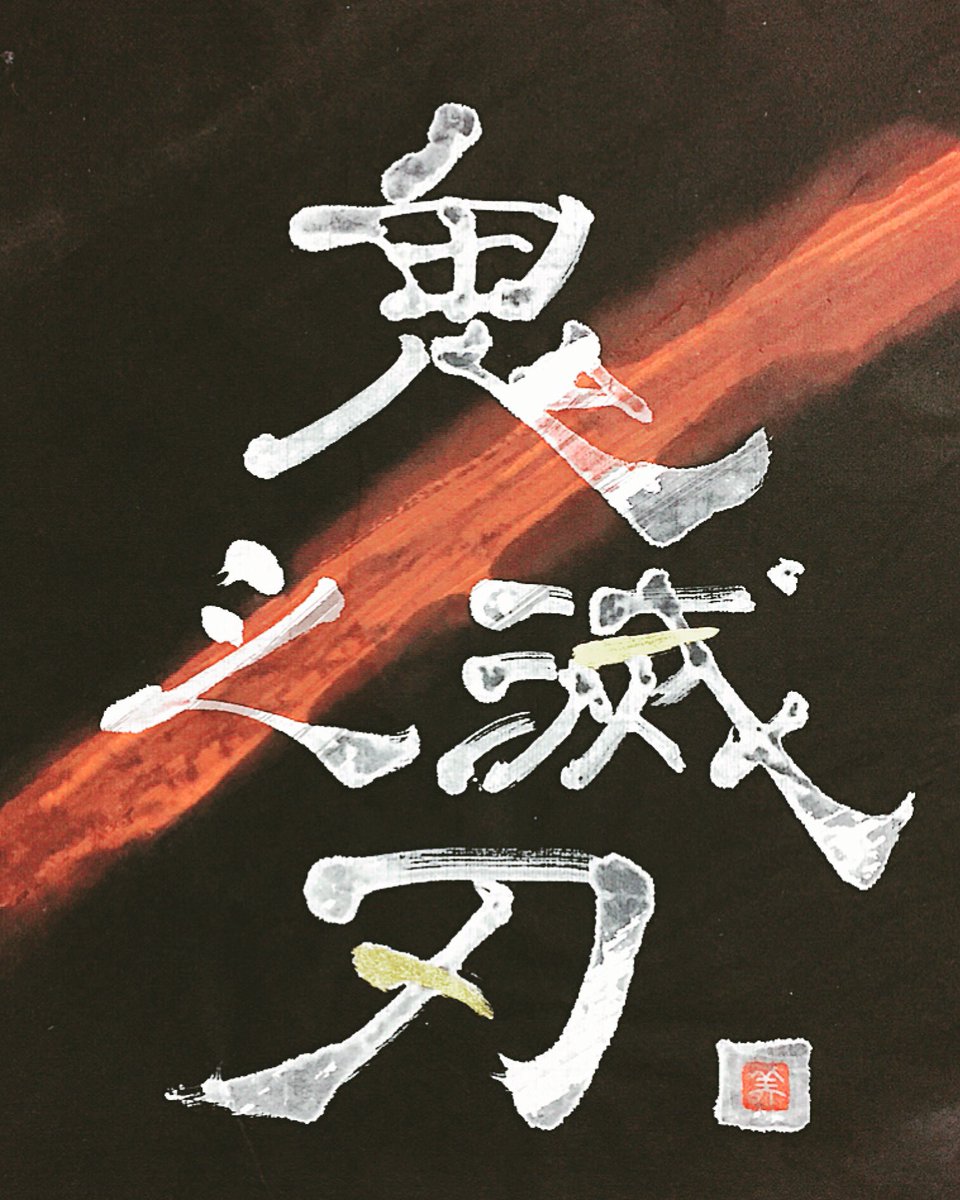 鬼
滅之
刃
美